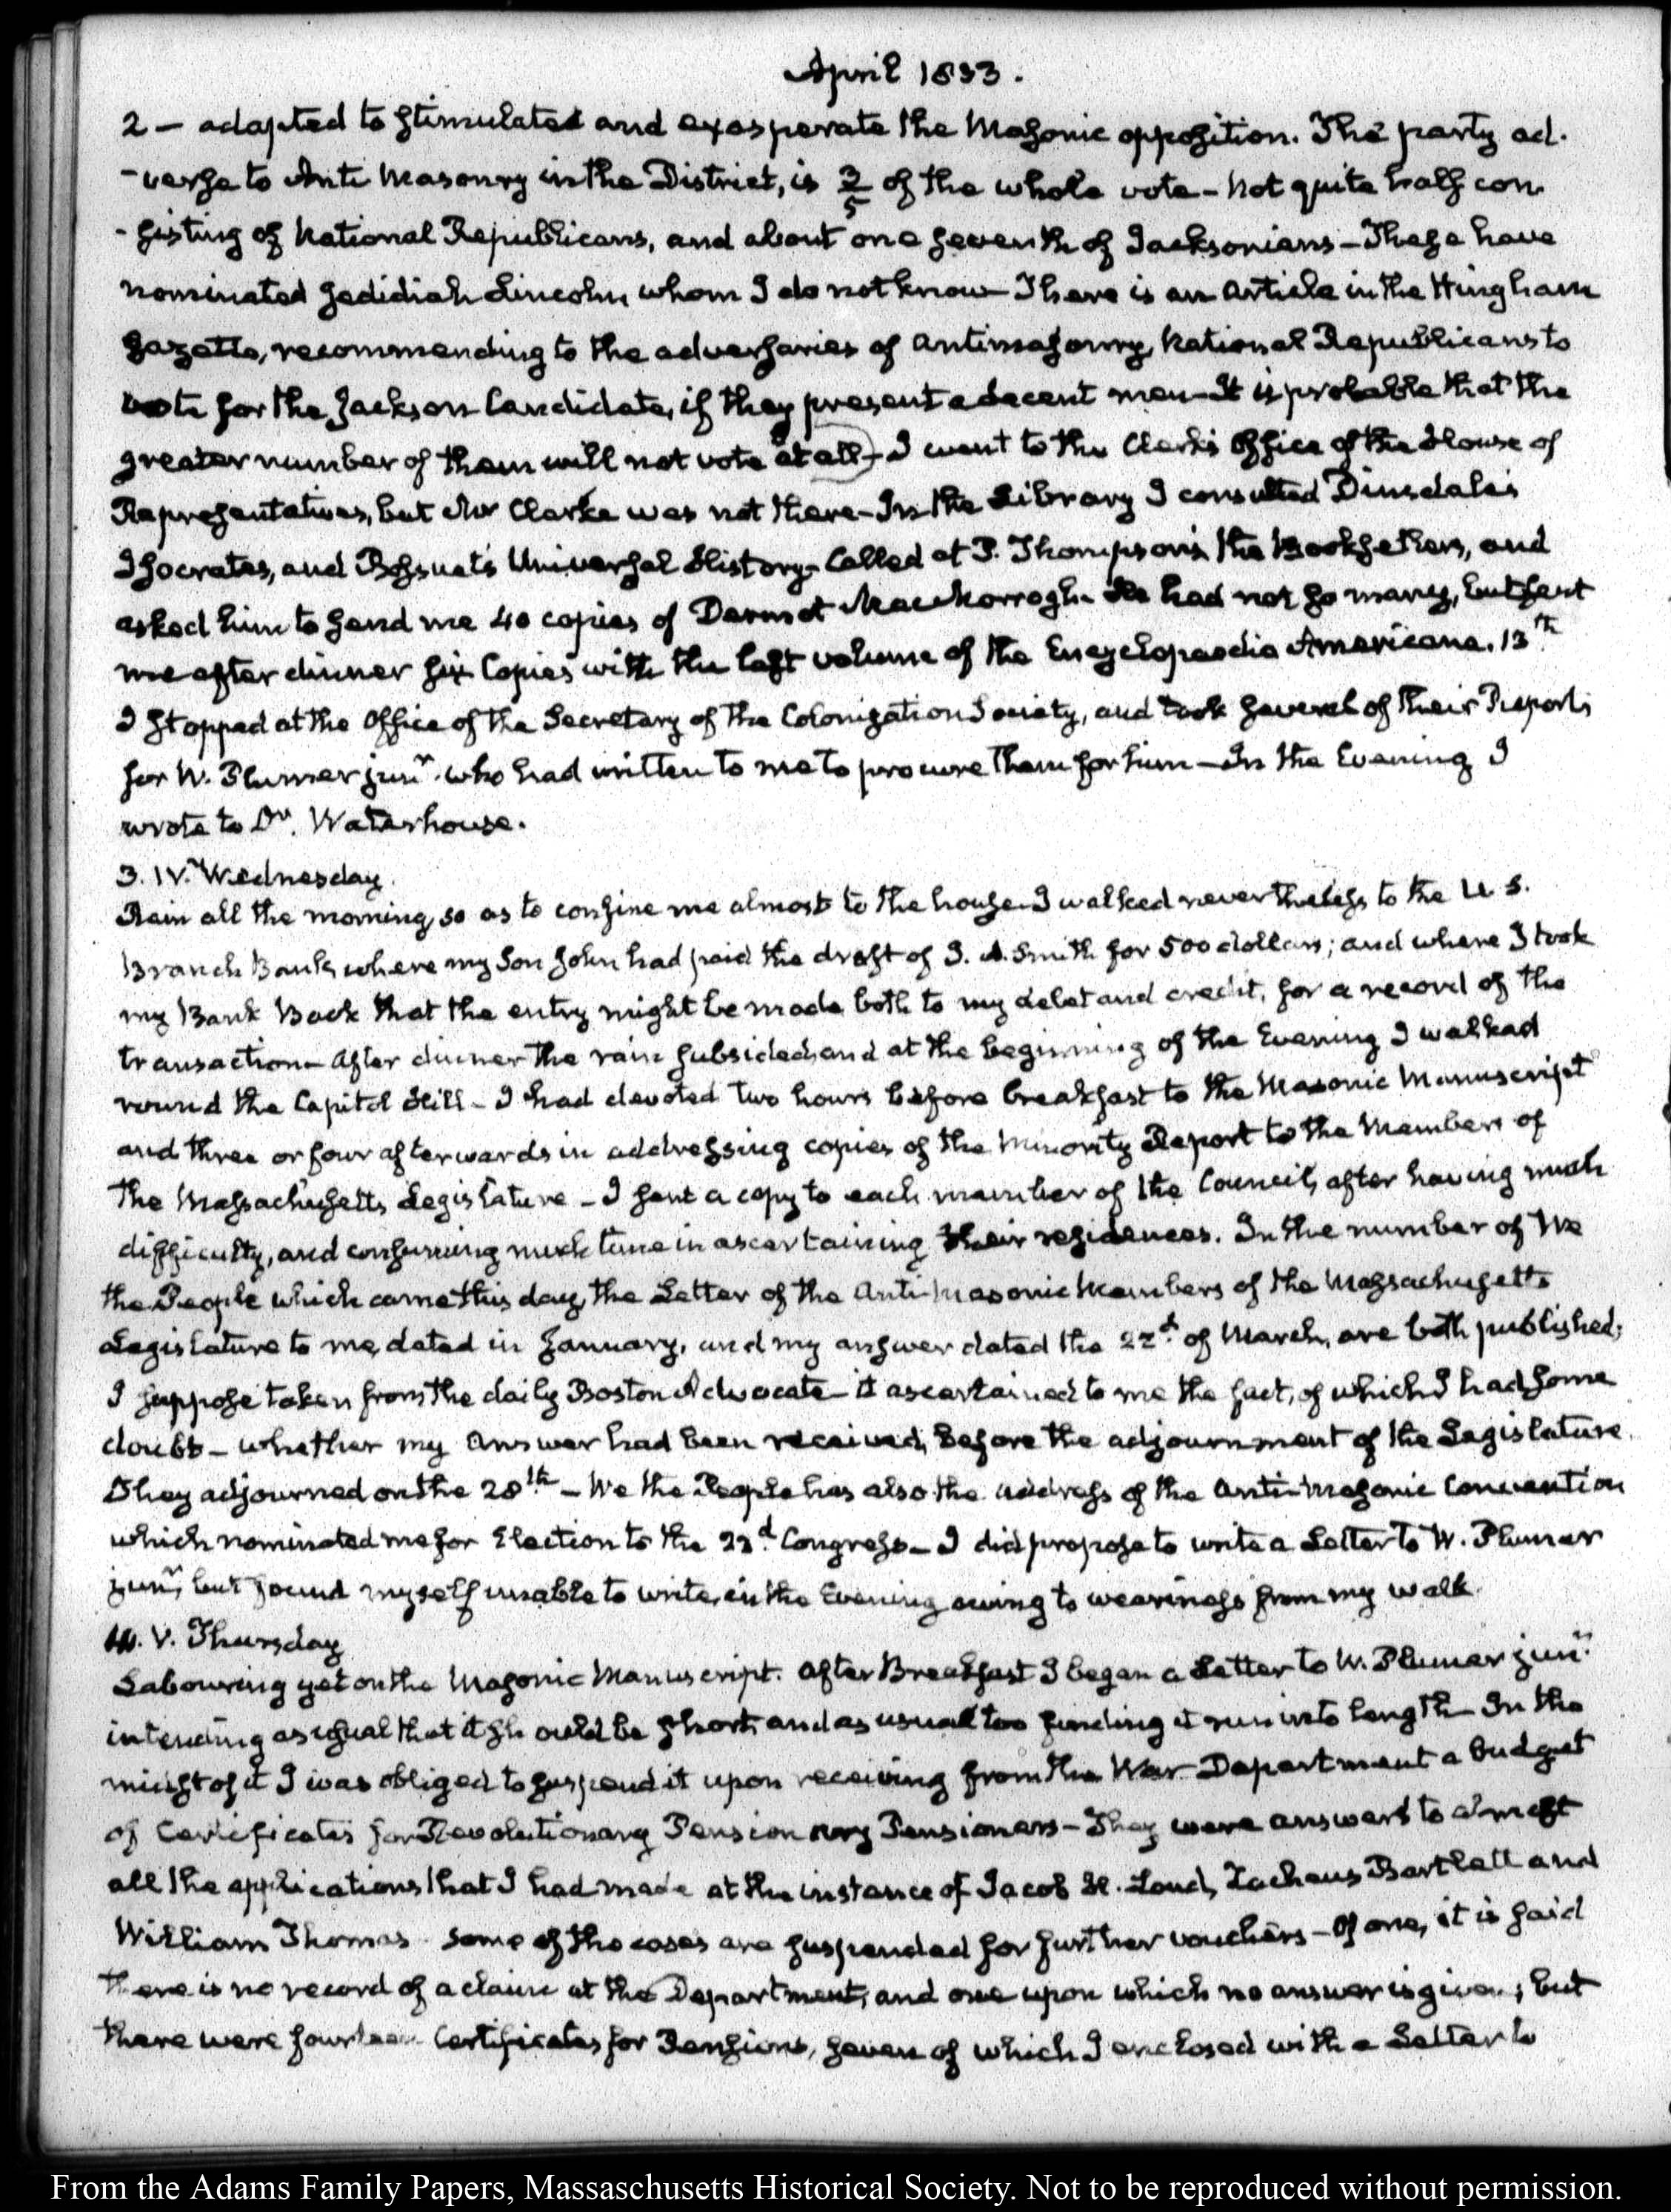 April 1833.
2 — adapted to stimulated and exasperate the Masonic opposition. The party ad-
-verse to Anti Masonry in the District, is 3/5 of the whole vote - not quite half con
-sisting of National Republicans, and about one seventh of Jacksonians - These have
nominated Jedidiah Lincoln, whom I do not know - There is an Article in the Hingham
Gazette, recommending to the adversaries of Antimasonry, National Republicans to
vote for the Jackson Candidate, if they present a decent man - It is probable that the
greater number of them will not vote at all - I went to the Clerk's Office of the House of
Representatives, but Mr Clarke was not there - In the Library I consulted Dinsdale's
Isocrates, and Bossuet's Universal History - Called at P. Thompson's the Bookseller's, and
asked him to send me 40 copies of Dermot MacMorrogh. He had not so many, but sent
me after dinner six Copies with the last volume of the Encyclopaedia Americana. 13th.
I stopped at the Office of the Secretary of the Colonization Society, and took several of their Reports
for W. Plumer junr. who had written to me to procure them for him - In the Evening I
wrote to Dr. Waterhouse.
3. IV. Wednesday.
Rain all the morning, so as to confine me almost to the house. I walked nevertheless to the U. S.
Branch Bank, where my Son John had paid the draft of J. A. Smith for 500 dollars; and where I took
my Bank Book that the entry might be made both to my debet and credit, for a record of the
transaction - After dinner the rain subsided, and at the beginning of the Evening I walked
round the Capitol Hill - I had devoted two hours before breakfast to the Masonic Manuscript
and three or four afterwards in addressing copies of the Minority Report to the Members of
the Massachusetts Legislature - I sent a copy to each member of the Council, after having much
difficulty, and consuming much time in ascertaining their residences. In the number of We
the People which came this day, the Letter of the Anti-Masonic Members of the Massachusetts
Legislature to me, dated in January, and my answer dated the 22d. of March, are both published;
I suppose taken from the daily Boston Advocate - it ascertained to me the fact, of which I had some
doubt - whether my Answer had been received, before the adjournment of the Legislature.
They adjourned on the 28th. - We the People has also the address of the Anti-Masonic Convention
which nominated me for Election to the 23d. Congress - I did propose to write a Letter to W. Plumer
junr, but found myself unable to write, in the Evening owing to weariness from my walk.
4. V. Thursday
Labouring yet on the Masonic Manuscript. After Breakfast I began a Letter to W. Plumer junr.
intending as usual that it should be short, and as usual too finding it run into length - In the
midst of it I was obliged to suspend it upon receiving from the War Department a budget
of Certificates for Revolutionary Pension ary Pensioners - They were answers to almost
all the applications that I had made at the instance of Jacob H. Loud, Zacheus Bartlett and
William Thomas - Some of the cases are suspended for further vouchers - Of one, it is said
there is no record of a claim at the Department, and one upon which no answer is given; but
there were fourteen Certificates for Pensions, seven of which I enclosed with a Letter to
From the Adams Family Papers, Massachusetts Historical Society. Not to be reproduced without permission.